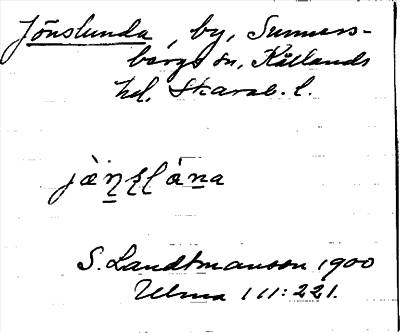 Jönslunda, by, Sunners-
bergs sn, Kållands
hd, Skarab. l.
jæ̀n̠slána
S. Landtmanson 1900
Ulma 111:221.